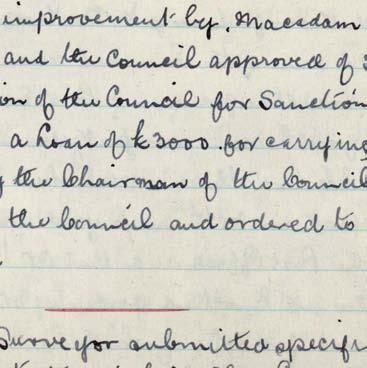 improvement by. Macadam
and the Council approved of
ion of the Council for Sanction
a Loan of £3000. for carrying
the Chairman of the Council
the Council and ordered to
Surveyor submitted specifi